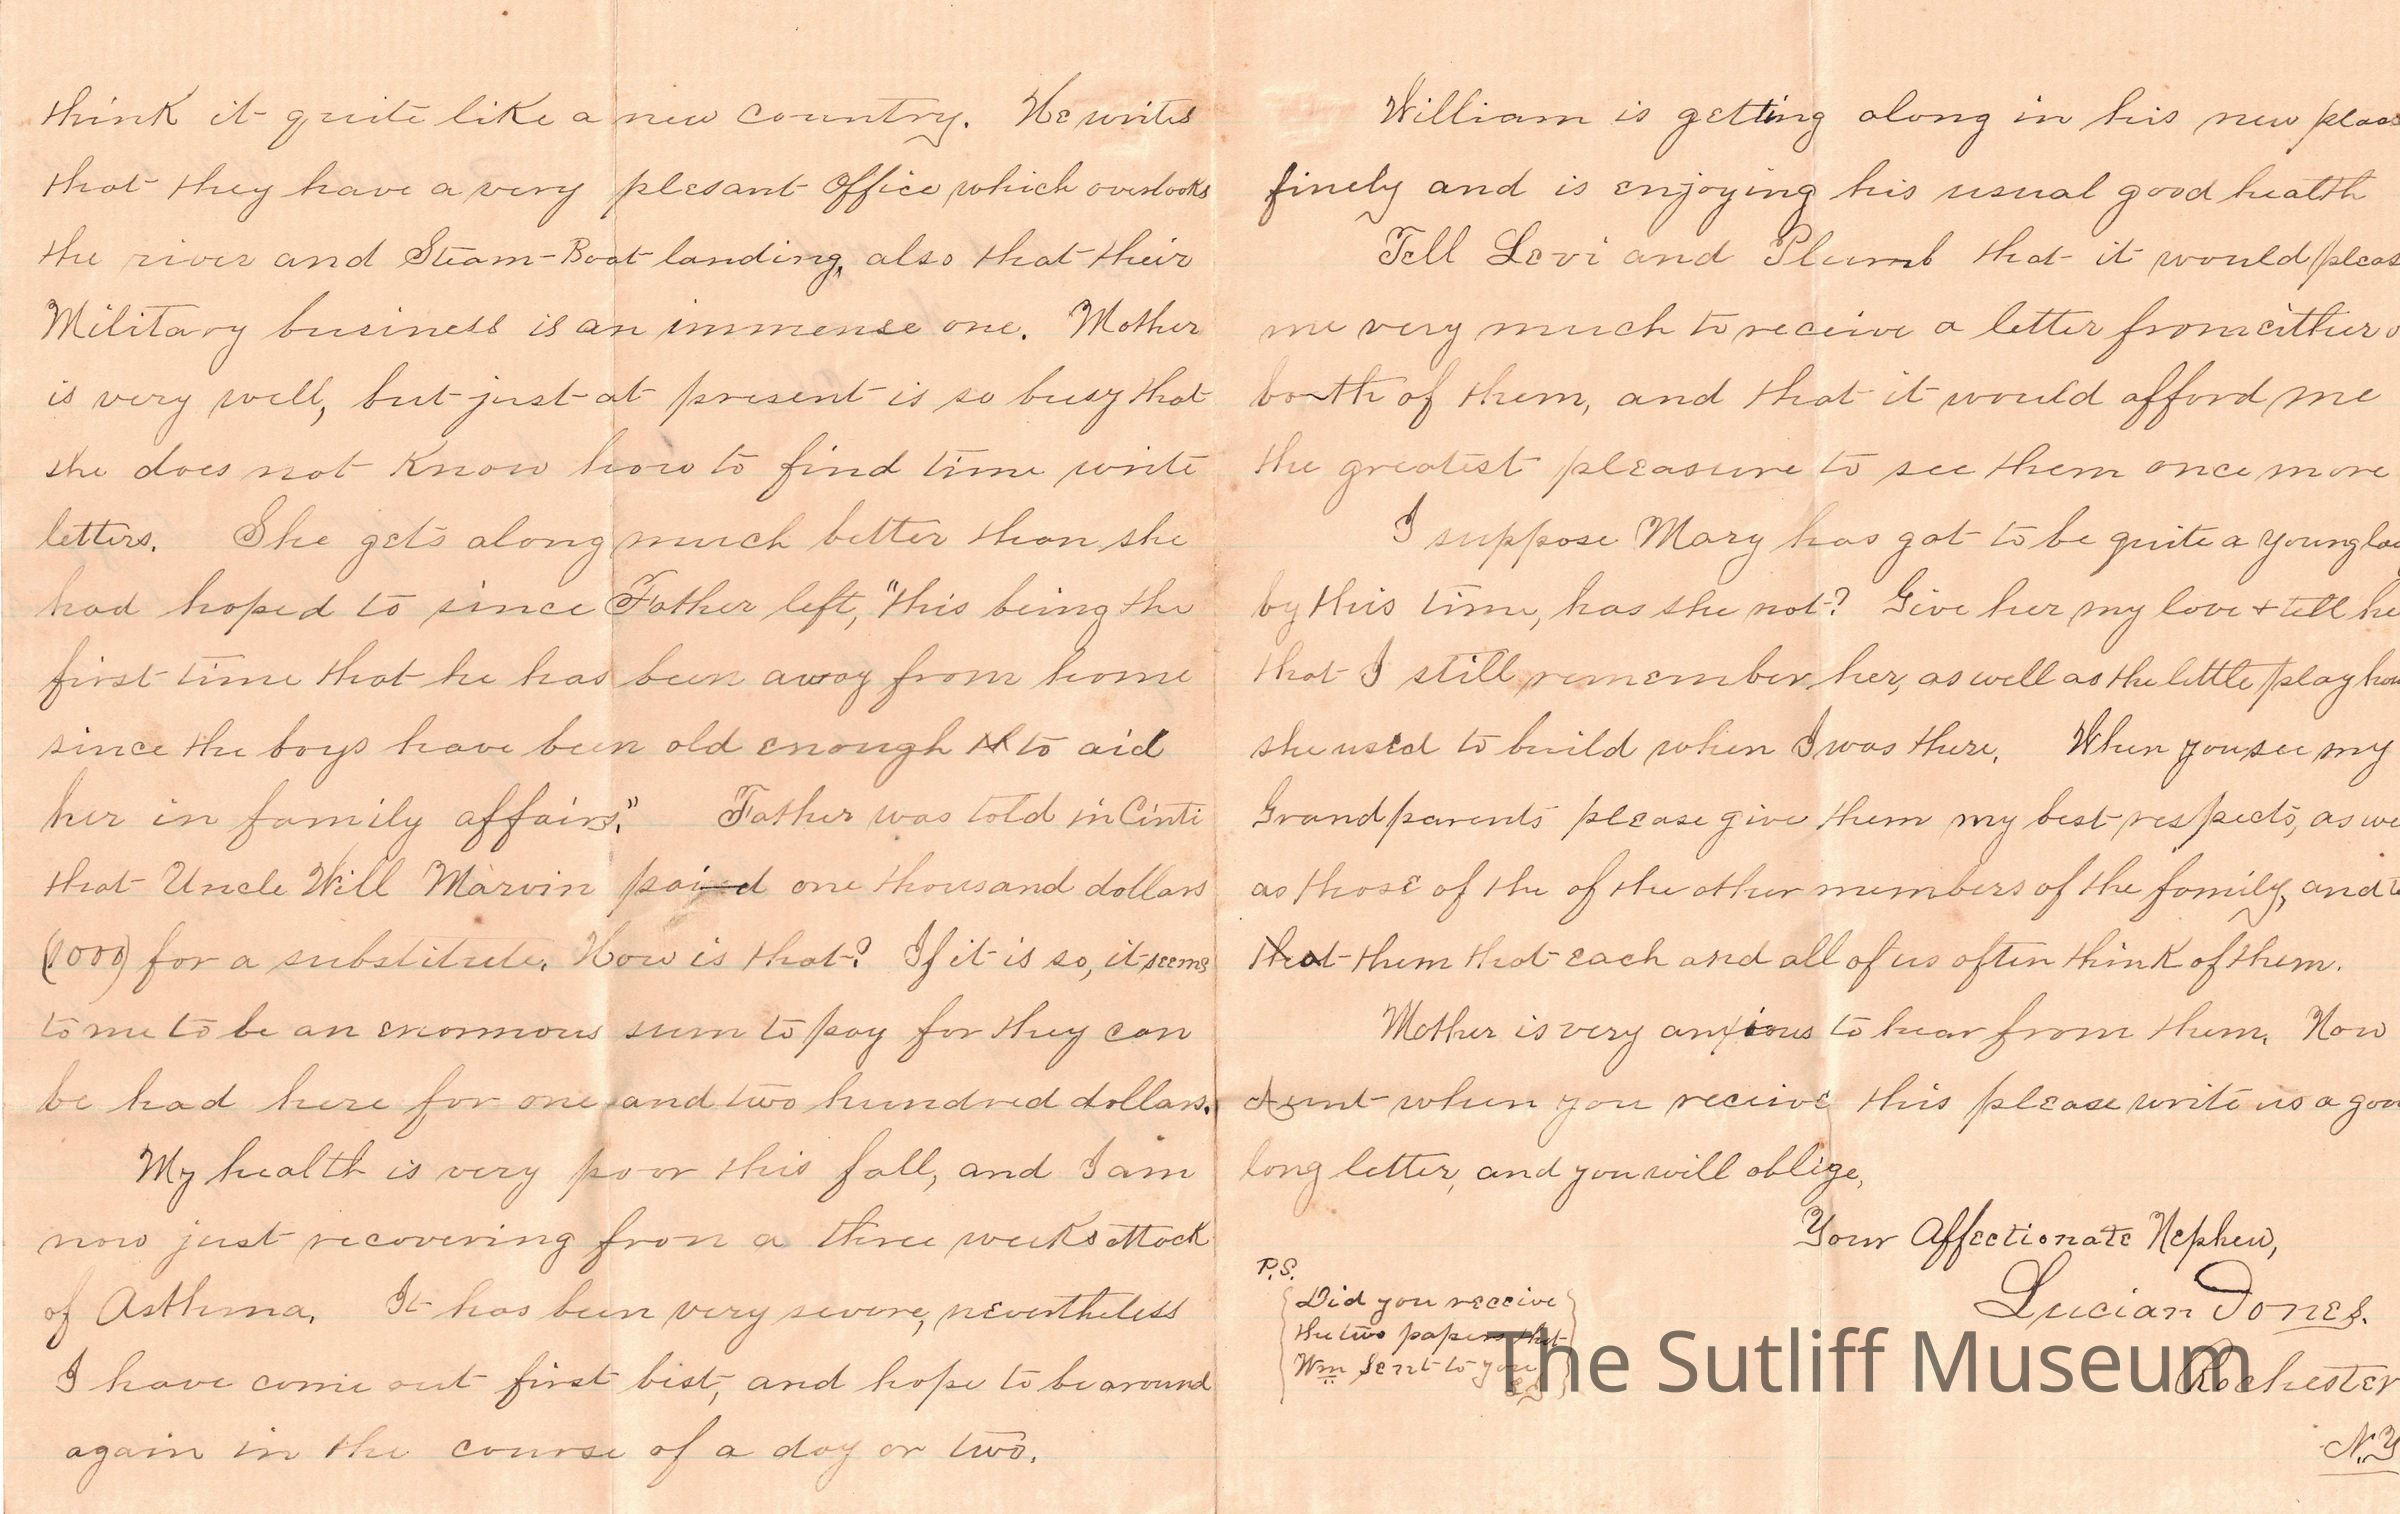 think it quite like a new country. He writes
that they have a very plesant Office which overlooks
the river and Steam-Boat landing, also that their
Military business is an immense one. Mother
is very well, but just at present is so busy that
she does not know how to find time write
letters. She gets along much better than she
had hoped to since Father left, "this being the
first time that he has been away from home
since the boys have been old enough to aid
her in family affairs." Father was told in Cinti
that Uncle Will Marvin paid one thousand dollars
(1000) for a substitute. How is that? If it is so, it seems
to me to be an enormous sum to pay for they can
be had here for one and two hundred dollars.
My health is very poor this fall, and I am
now just recovering from a three weeks attack
of Asthma. It has been very severe, nevertheless
I have come out first best, and hope to be around
again in the course of a day or two.
William is getting along in his new place
finely and is enjoying his usual good health
Tell Levi and Plumb that it would pleas
me very much to receive a letter from either o
both of them, and that it would afford me
the greatest pleasure to see them once more
I suppose Mary has got to be quite a young la
by this time, has she not? Give her my love + tell he
that I still remember her, as well as the little play hou
she used to build when I was there. When you see my
Grandparents please give them my best respects, as we
as those of the of the other members of the family, and t
that them that each and all of us often think of them.
Mother is very anxious to hear from them. Now
Aunt when you receive this please write us a goo
long letter, and you will oblige,
Your Affectionate Nephew,
Lucian Jones.
Rochester
N.Y
P.S.
Did you receive
the two papers that
Wm sent to you
The Sutliff Museum